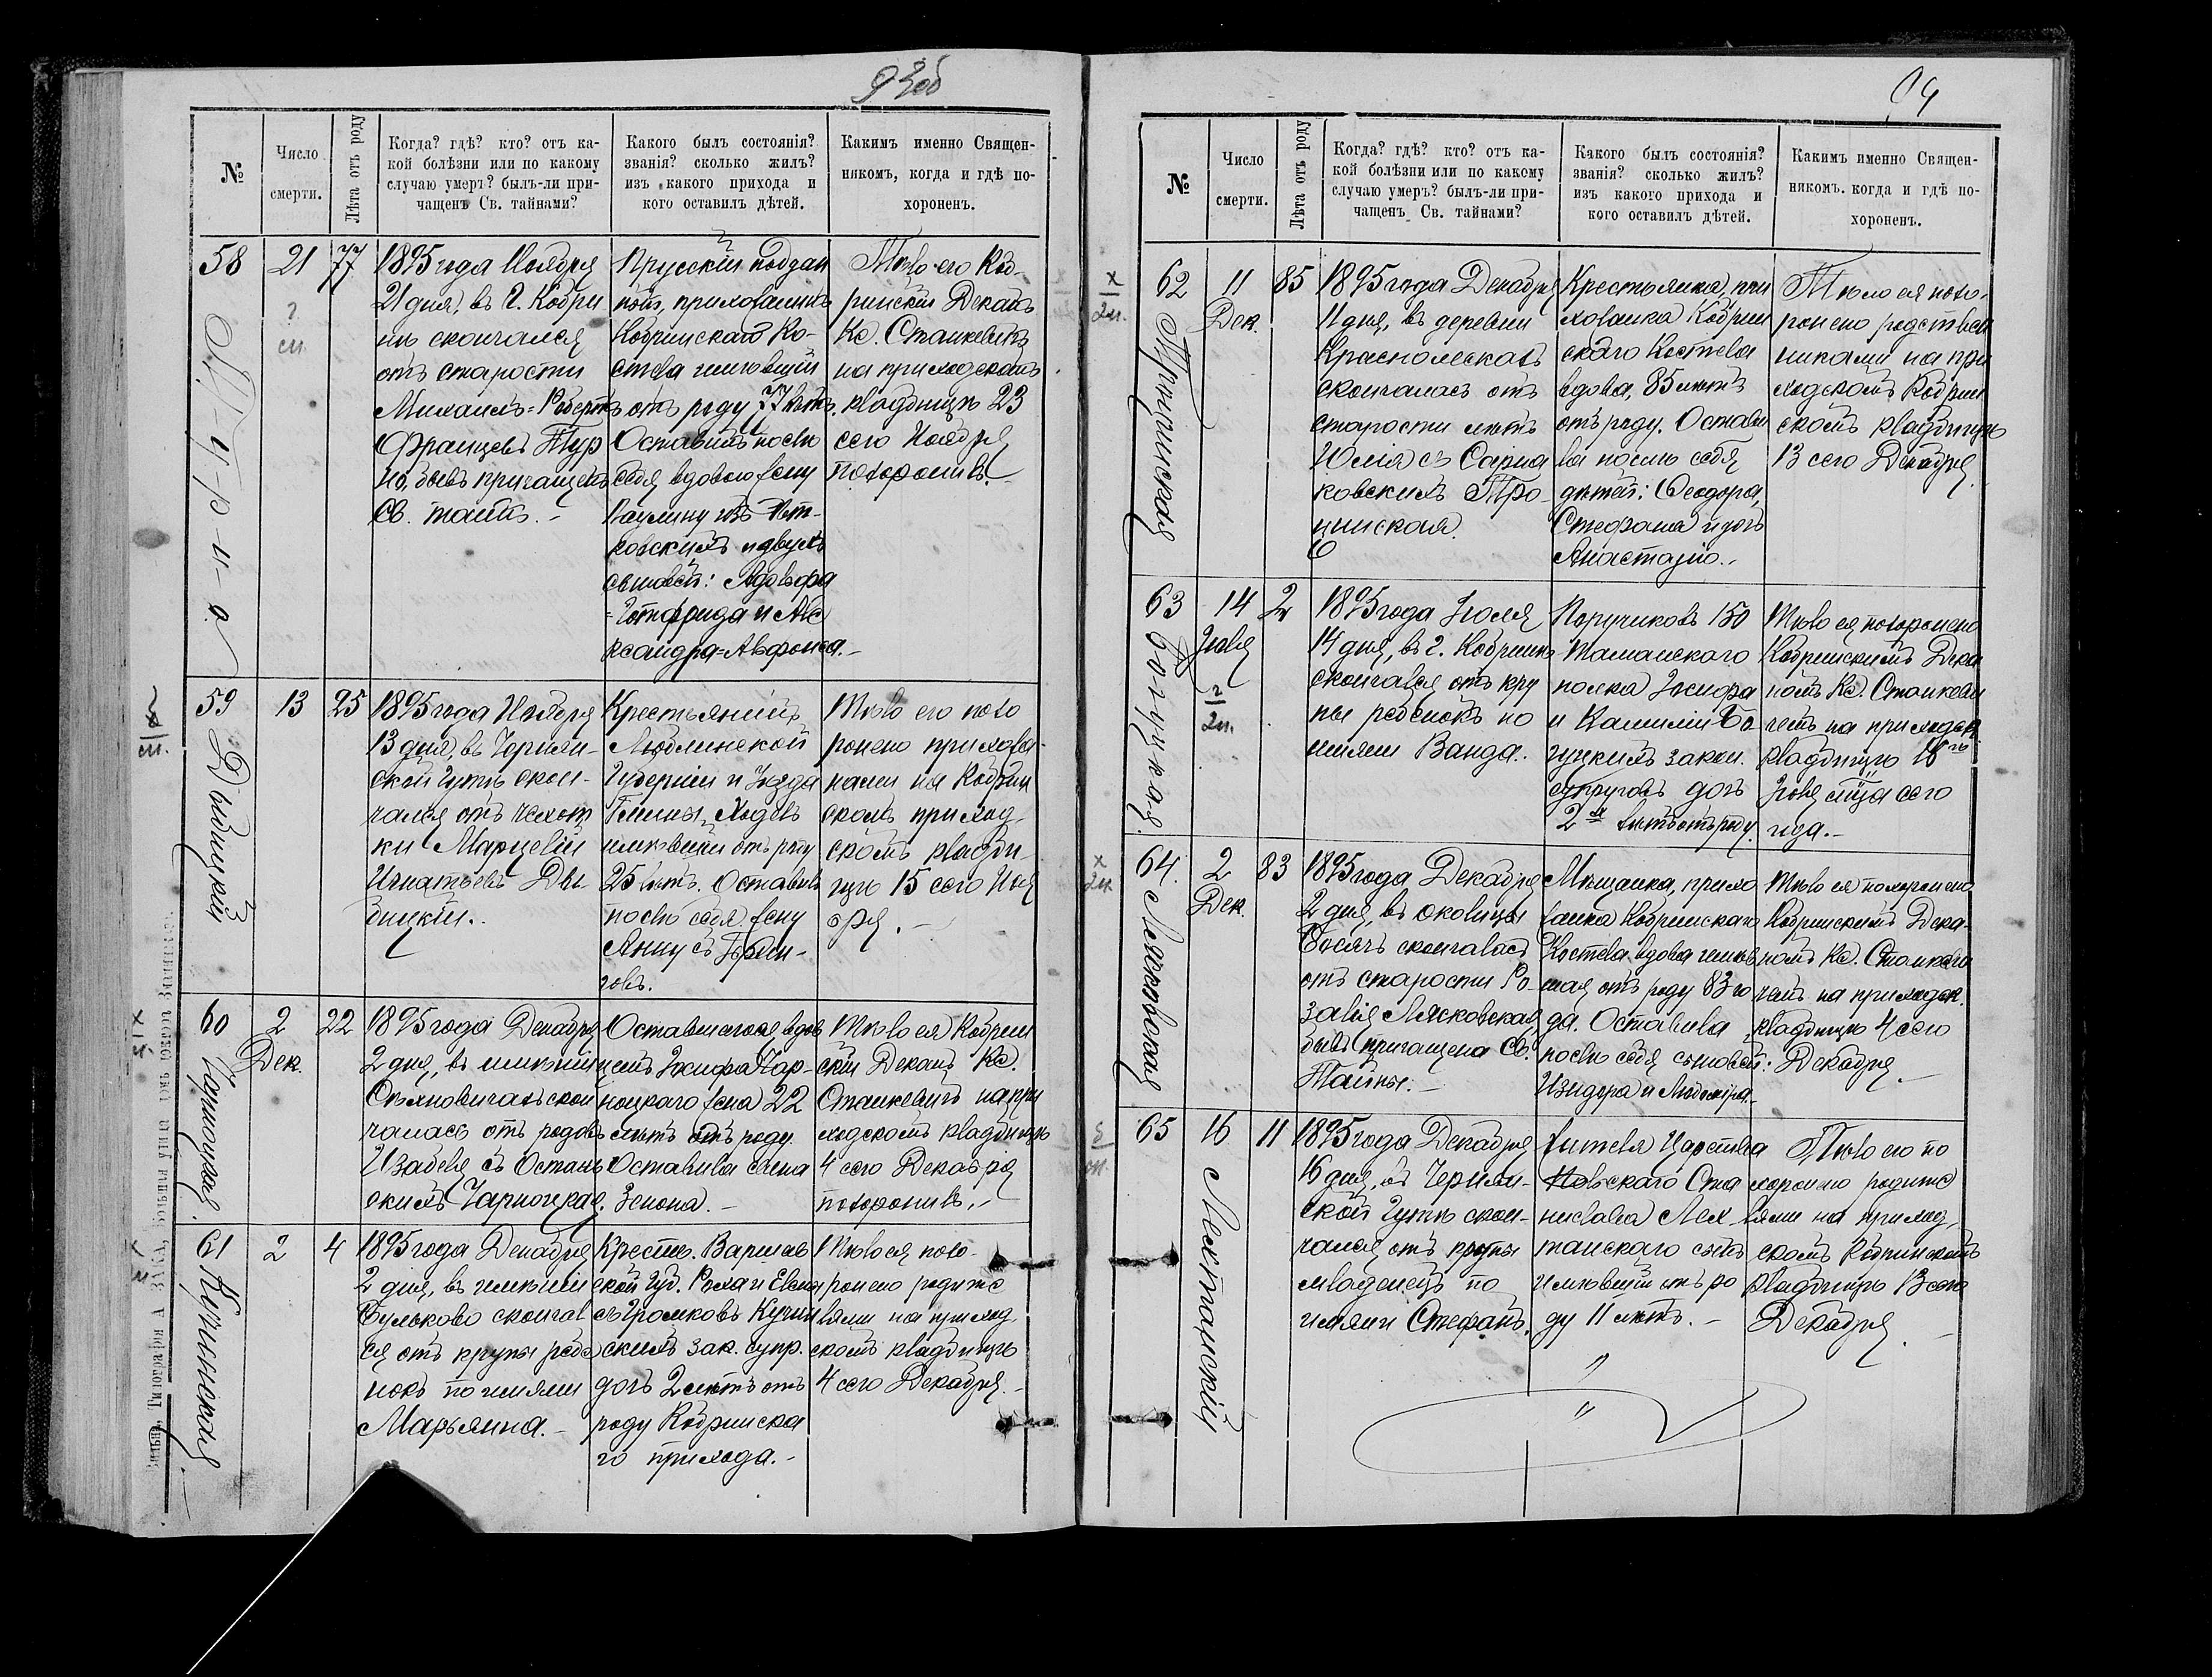 93об
№
Число
смерти.
Лѣта отъ роду
Когда? гдѣ? кто? отъ ка-
кой болѣзни или по какому
случаю умеръ? былъ-ли при-
чащенъ Св. тайнами?
Какого былъ состоянія?
званія? сколько жилъ?
изъ какого прихода и
кого оставилъ дѣтей.
Какимъ именно Священ-
никомъ, когда и гдѣ по-
хороненъ.
58
Турно
21
77
1895 года Ноября
21 дня, въ г. Кобри
нѣ скончался
отъ старости
Михаилъ=Робертъ
Францевъ Тур
но, бывъ причащенъ
Св. таинъ.-
Прусскій поддан
ный, прихожанинъ
Кобринскаго Ко-
стела имѣвшій
отъ роду 77 лѣтъ.
Оставилъ послѣ
себя вдовою жену
Паулину изъ
ковскихъ и двухъ
сыновей: Адольфа
=Готфрида и Але
ксандра=Альфонса.-
Тѣло его Коб-
ринскій Деканъ
Кс. Станкевичъ
на приходскомъ
кладбищѣ 23
сего Ноября
похоронилъ.-
59
13
25
1895 года Ноября
13 дня, въ Черпян-
ской Гутѣ скон-
чался отъ чахот
ки Марцелій
Игнатьевъ Ды
бицкій..
Крестьянинъ
Люблинской
Губерніи и Уѣзда
Гмины
имѣвшій отъ роду
25 лѣтъ. Оставилъ
послѣ себя жену
Анну съ
говъ.
Тѣло его похо
ронено прихожа-
нами на Кобрин
скомъ приход-
скомъ кладби-
щѣ 15 сего Ноя
бря.-
60
Чарноцкая
2
Дек.
22
1895 года Декабря
2 дня, въ имѣніи
Стяновичахъ скон
чалась отъ родовъ
Изабеля съ Остань
скихъ Чарноцкая.
Оставшагося вдов
цемъ Іосифа Чар-
ноцкаго жена 22
лѣтъ отъ роду.
Оставила сына
Зенона.-
Тѣло ея Кобрин
скій Деканъ Кс.
Станкевичъ на при
ходскомъ кладбищѣ
4 сего Декабря
похоронилъ.-
61
2
4
1895 года Декабря
2 дня, въ имѣніи
Бульково скончал
ся отъ крупы ребе
нокъ по имени
Марьянна.-
Кресть. Варшав
ской Губ. Роха и Евы
съ Громковъ Кучин
скихъ зак. супр.
дочь 2 лѣтъ отъ
роду Кобринска
го прихода.-
Тѣло ея похо-
ронено родите
лями на приход-
скомъ кладбищѣ
4 сего Декабря.-
94
№
Число
смерти.
Лѣта отъ роду
Когда? гдѣ? кто? отъ ка-
кой болѣзни или по какому
случаю умеръ? былъ-ли при-
чащенъ Св. тайнами?
Какого былъ состоянія?
званія? сколько жилъ?
изъ какого прихода и
кого оставилъ дѣтей.
Какимъ именно Священ-
никомъ. когда и гдѣ по-
хороненъ.
62
11
Дек.
85
1895 года Декабря
11 дня, въ деревни
Краснолескахъ
скончалась отъ
старости лѣтъ
Юлія съ Сарна
ковскихъ Тро-
цинская.
Крестьянка, при
хожанка Кобрин
скаго Костела
вдова, 85 лѣтъ
отъ роду. Остави
ла послѣ себя
дѣтей: Ѳеодора,
Стефана и дочь
Анастазію.-
Тѣло ея похо-
ронено родствен
никами на при
ходскомъ Кобрин
скомъ кладбищѣ
13 сего Декабря
63
Богуцкая
14
Іюля
2
1895 года Іюля
14 дня, въ г. Кобринѣ
скончался отъ кру
пы ребенокъ по
имени Ванда..
Поручиковъ 150
Таманского
полка Іосифа
и Камиліи Бо
гуцкихъ закон.
супруговъ дочь
2хъ лѣтъ отъ роду.
Тѣло ея похоронено
Кобринскимъ Дека
номъ Кс. Станкеви
чемъ на приходск.
кладбищѣ 16го
Іюля м̃ца сего
года.-
64.
Лясковская
2
Дек.
83
1895 года Декабря
2 дня, въ околицы
скончалась
отъ старости Ро-
залія Лясковская
бывъ причащена Св.
Тайны.-
Мѣщанка, прихо
жанка Кобринскаго
Костела, вдова имѣв
шая отъ роду 83 го
да. Оставила
послѣ себя сыновей:
Изидора и Людоміра.-
Тѣло ея похоронено
Кобринскимъ Дека-
номъ Кс. Станкеви
чемъ на приходск.
кладбищѣ 4 сего
Декабря.-
65
Лехтанскій
16
11
1895 года Декабря
16 дня, въ Черпян-
ской Гутѣ скон-
чался отъ крупы
младенецъ по
имени Стефанъ.
Жителя Царства
Польскаго Ста
нислава Лех-
танскаго сынъ
имѣвшій отъ ро
ду 11 лѣтъ.-
Тѣло его по
хоронено родите
лями на приход-
скомъ Кобринскомъ
кладбищѣ 18 сего
Декабря.-